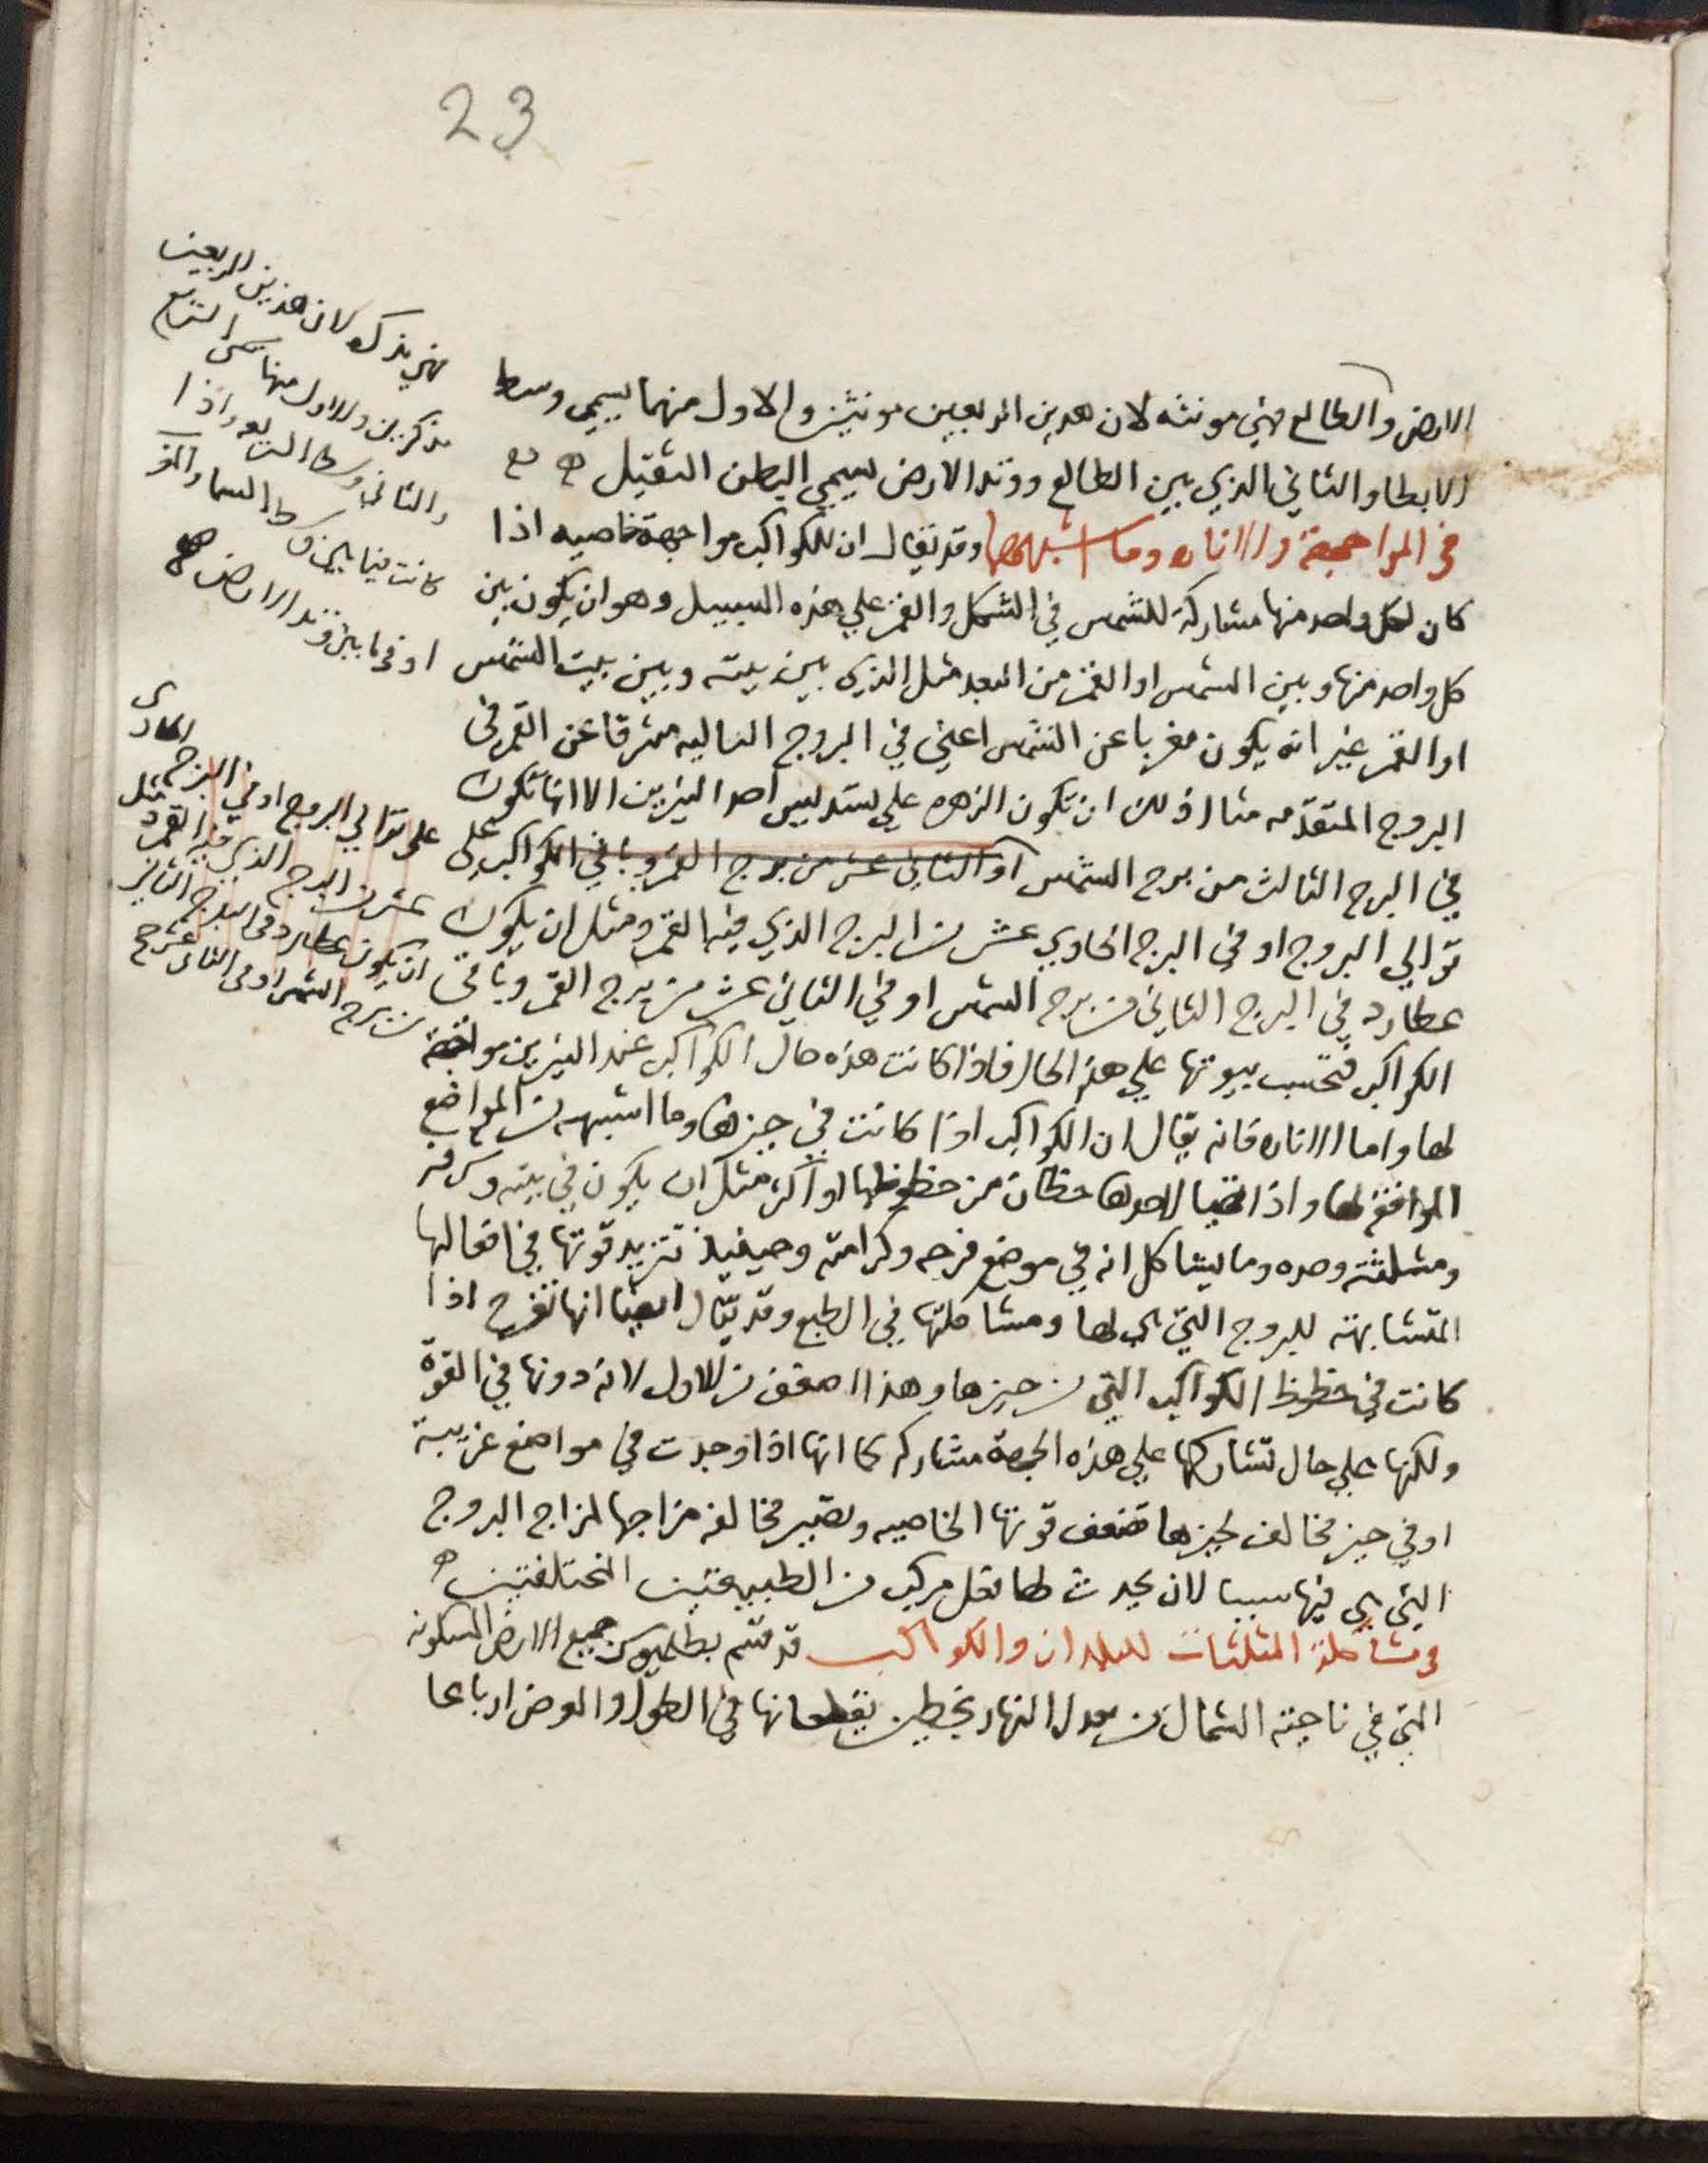 23
فهي مذكره لان هذين الربعين
مذكرين والاول منها يسمى التسابع
والثاني وسط التسابع واذا
كانت فيما بين وسط السما والمغرب
او فيما بين وتد الارض
الارض والطالع فهي مونثه لان هذين الربعين مونثين والاول منهما يسمي وسط
الابطا والثاني الذي بين الطالع ووتد الارض يسمي البطن الثقيل
في المواجهة والاناره وما اشبههما وقد يقال ان للكواكب مواجهة خاصيه اذا
كان لكل واحد منها مشاركة للشمس في الشكل والقمر علي هذه السبيل وهو ان يكون بين
كل واحد منها وبين الشمس او القمر من البعد مثل الذي بين بيته وبين بيت الشمس
او القمر غير انه يكون مغربا عن الشمس اعني في البروج التاليه مشرقا عن القمر في
البروج المتقدمه مثال ذلك ان تكون الزهره علي تسديس احد النيرين الا انها تكون
في البرج الثالث من برج الشمس او الثاني عشر من برج القمر وباقي الكواكب علي
توالي البروج او في البرج الحادي عشر من البرج الذي فيه القمر ومثل ان يكون
عطارد في البرج الثاني من برج الشمس او في الثاني عشر من برج القمر وباقي
الكواكب فتحسب بيوتها علي هذا الحال فاذا كانت هذه حال الكواكب عند النيرين مواجهة
لها واما الاناره فانه يقال ان الكواكب اذا كانت في حيزها وما اشبهه من المواضع
الموافقه لها واذا لاحدها حظان من حظوظها او اكثر مثل ان يكون في بيته وشرفه
ومثلثته وحده وما يشاكل انه في موضع فرحه وكرامته وحينيذ تتزيد قوتها في افعالها
المتشابهته للبروج التي هي لها ومشاكلتها في الطبع وقد يقال ايضا انها تفرح اذا
كانت في حظوظ الكواكب التي من حيزها وهذا اضعف من الاول لانه دونها في القوة
ولكنها علي حال تشاركها علي هذه الجهة مشاركه كما انها اذا وجدت في مواضع غريبة
او في حيز مخالف لحيزها تضعف قوتها الخاصيه وتصير مخالفه مزاجها لمزاج البروج
التي هي فيها سببا لان يحدث لها فعل مركب من الطبيعتين المختلفتين
في مشاكلة المثلثات للبلدان والكواكب قد قسم بطلميوس جميع الارض المسكونه
التي في ناحية الشمال من معدل النهار بخطين يقطعانها في الطول والعرض ارباعا
على توالي البروج او في البرج الحادي
عشر من البرج الذي فيه القمر مثل
ان يكون عطارد في البرج الثاني
من برج الشمس او في الثاني عشر من برج القمر